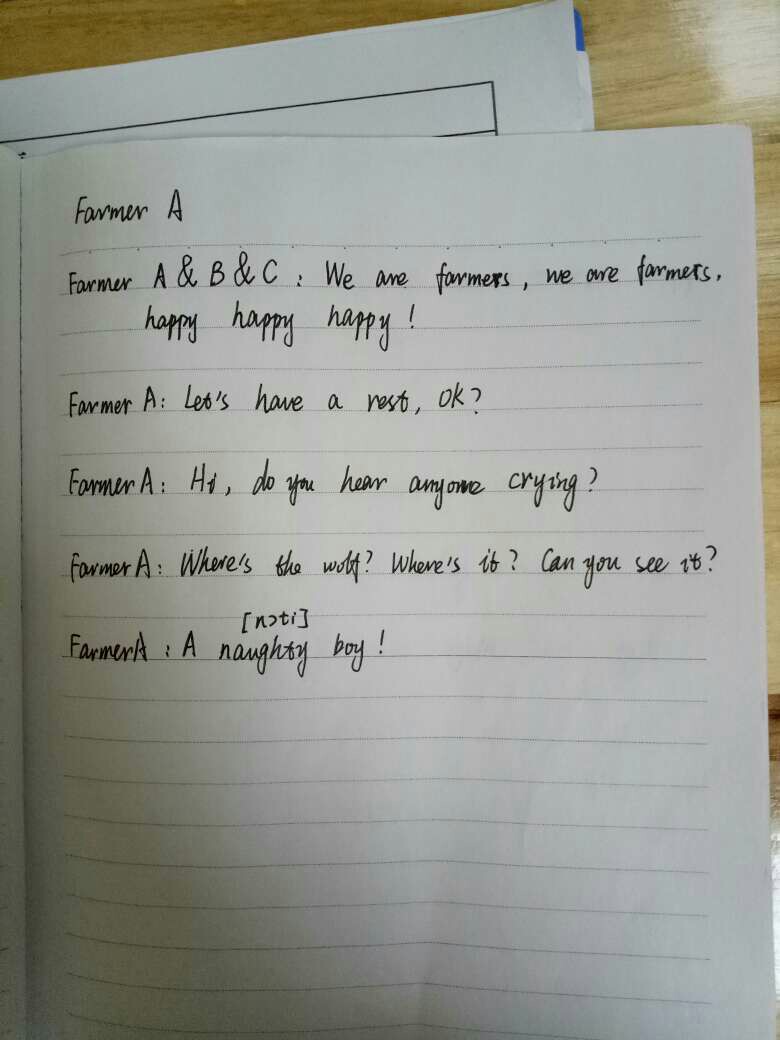 Farmer A
Farmer A & B & C : We are farmers, we are farmers,
happy happy happy !
Farmer A: Let's have a rest, OK?
Farmer A: Hi, do you hear anyone crying?
Farmer A: Where's the wolf? Where's it? Can you see it?
[nɔti]
Farmer A : A naughty boy !